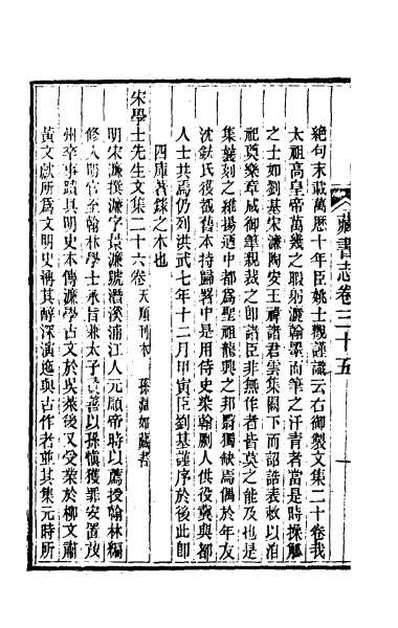 藏書志卷三十五
絶句末載萬厯十年臣姚士觀謹識云右御製文集二十卷我
太祖高皇帝萬幾之暇躬灑翰墨而筆之汗青者當是時操觚
之士如劉基宋濂陶安王禕諸君雲集闕下而詔誥表敕以洎
祀奠樂章咸御筆親裁之即諸臣非無作者皆莫之能及也是
集鋟刻之維揚迺中都爲聖祖龍興之邦獨缺焉偶於年友
沈鈇氏獲舊本持歸署中是用侍史染翰劂人供役冀與都
人士共焉仍列洪武七年十二月甲寅臣劉基謹序於後此即
四庫著錄之本也
宋學士先生文集二十六卷 天順刊本
明宋濂撰濂字景濂號潛溪浦江人元順帝時以薦授翰林編
修入明官至翰林學士承旨兼太子贊善以孫慎獲罪安置茂
州卒事蹟具明史本傳濂學古文於吳萊後又受業於柳文肅
黃文獻所爲文明史稱其醇深演迤與古作者並其集元時所